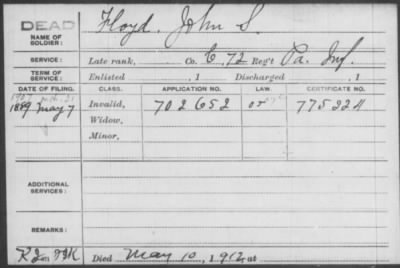 DEAD
NAME OF SOLDIER: Floyd, John S.
SERVICE: Late rank, Co. C, 72 Reg't Pa. Inf.
TERM OF SERVICE: Enlisted , 1 Discharged , 1
DATE OF FILING. CLASS. APPLICATION NO. LAW. CERTIFICATE NO.
1889 May 7 Invalid, 702652 775224
Widow,
Minor,
ADDITIONAL SERVICES:
REMARKS:
Died May 10, 1912, at